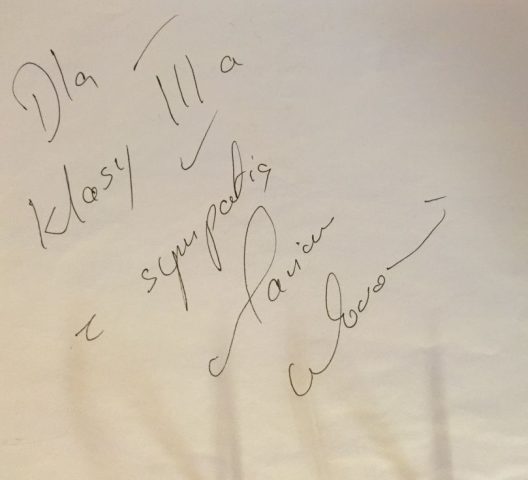 Dla
klasy III a
z sympatią
Marian